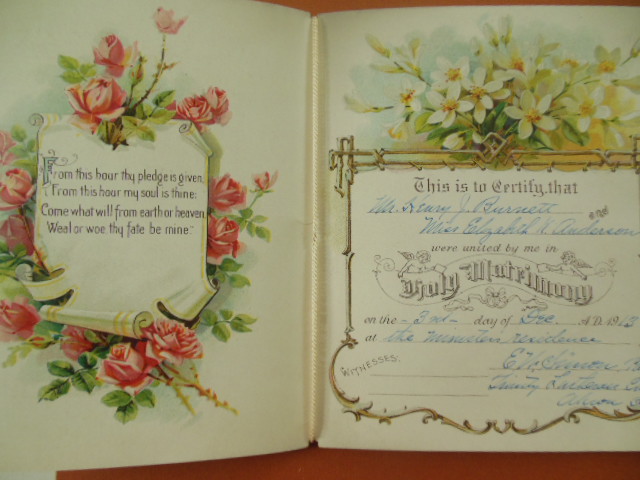 From this hour thy pledge is given,
From this hour my soul is thine:
Come what will from earth or heaven
Weal or woe thy fate be mine."
This is to Certify, that
Mr. Henry J. Burnett and
Miss Elizabeth Anderson
were united by me in
Holy Matrimony
on the - 3rd - day of Dec. A.D. 1913
at the ministers residence
WITNESSES:
E.W.
Trinity Lutheran